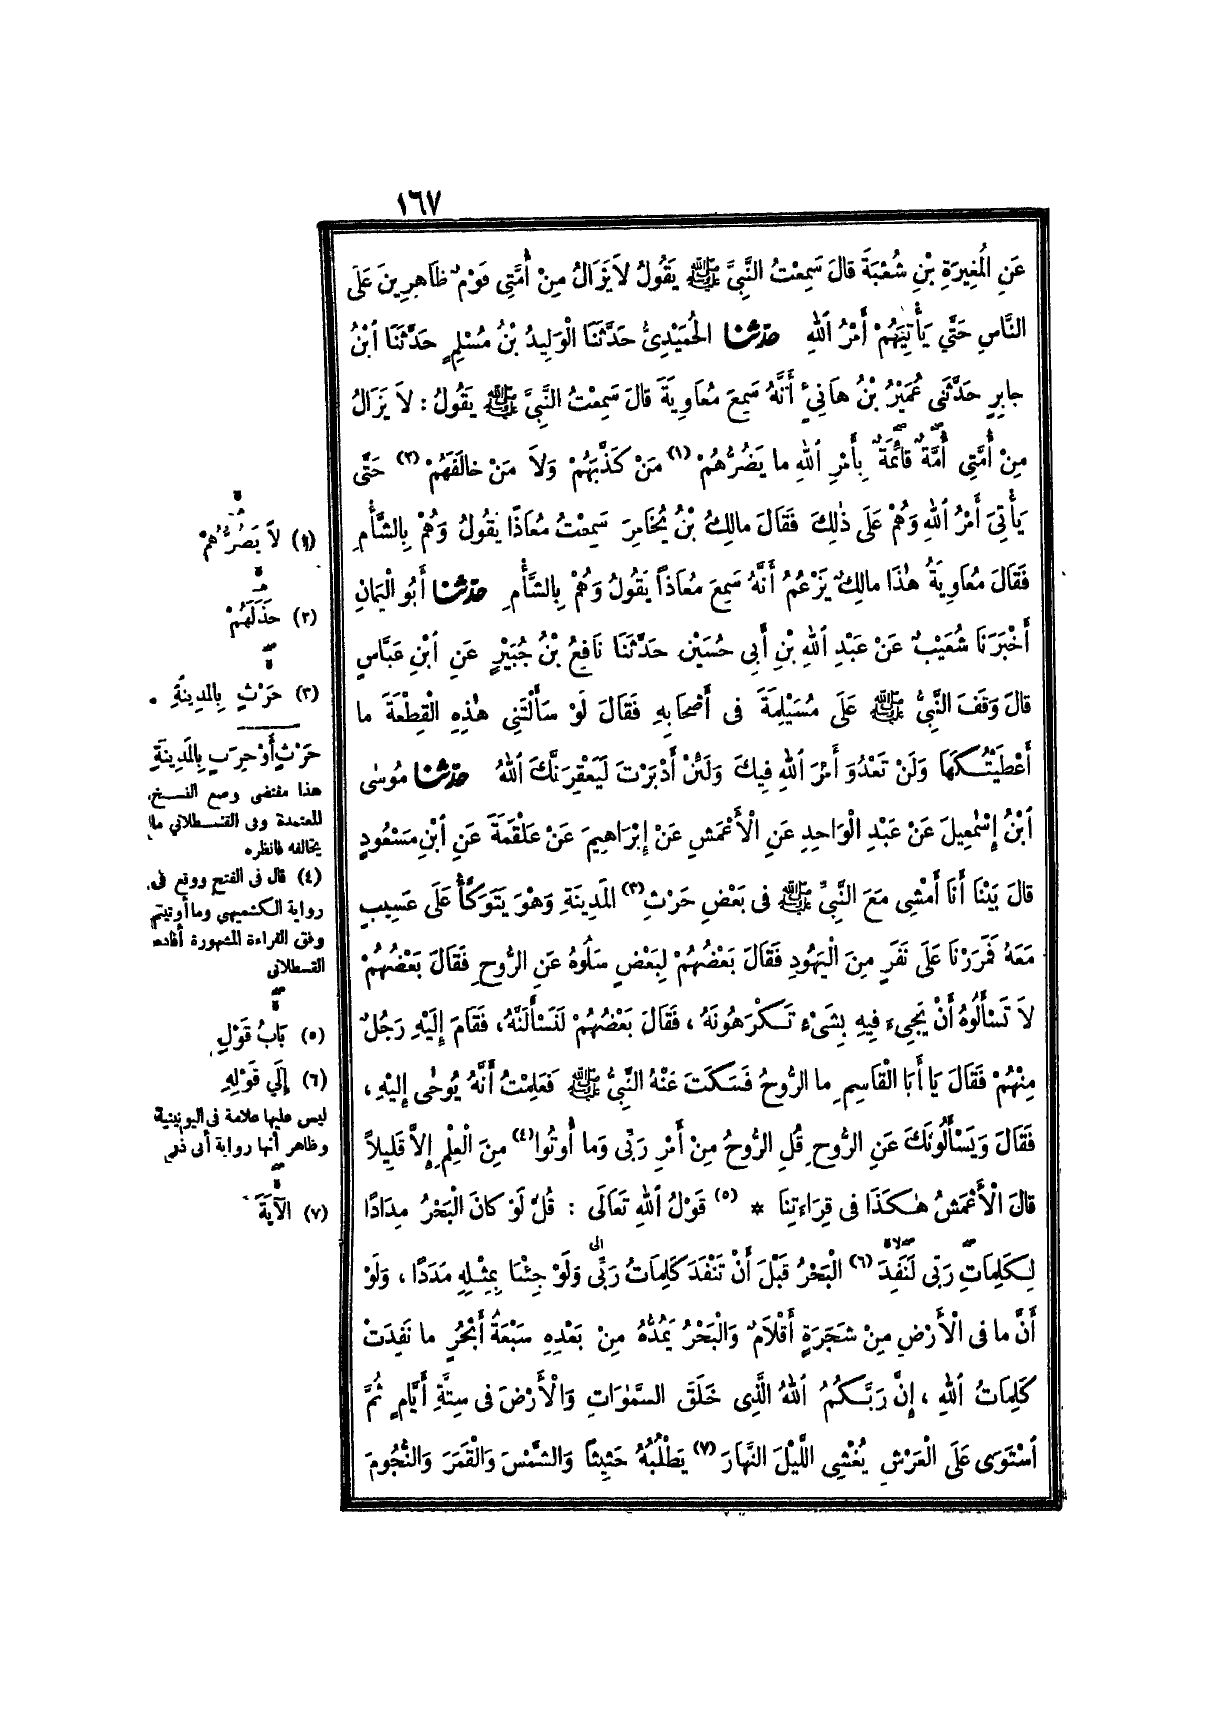 ١٦٧
عَنِ الْمُغِيرَةِ بْنِ شُعْبَةَ قالَ سَمِعْتُ النَّبِيَّ ﷺ يَقُولُ لاَ يَزَالُ مِنْ أُمَّتِي قَوْمٌ ظَاهِرِينَ عَلَى
النَّاسِ حَتَّى يَأْتِيَهُمْ أَمْرُ اللهِ حدّثنا الحُمَيْدِيُّ حَدَّثَنَا الْوَلِيدُ بْنُ مُسْلِمٍ حَدَّثَنَا ابْنُ
جابِرٍ حَدَّثَنِي عُمَيْرُ بْنُ هَانِئٍ أَنَّهُ سَمِعَ مُعَاوِيَةَ قالَ سَمِعْتُ النَّبِيَّ ﷺ يَقُولُ : لاَ يَزَالُ
مِنْ أُمَّتِي أُمَّةٌ قائِمَةٌ بِأَمْرِ اللهِ ما يَضُرُّهُمْ (١) مَنْ كَذَّبَهُمْ وَلاَ مَنْ خالَفَهُمْ (٢) حَتَّى
يَأْتِيَ أَمْرُ اللهِ وَهُمْ عَلَى ذٰلِكَ فَقَالَ مالِكُ بْنُ يُخَامِرَ سَمِعْتُ مُعَاذًا يَقُولُ وَهُمْ بِالشَّأْمِ
فَقَالَ مُعَاوِيَةُ هٰذَا مالِكٌ يَزْعُمُ أَنَّهُ سَمِعَ مُعَاذًا يَقُولُ وَهُمْ بِالشَّأْمِ حدّثنا أَبُو الْيَمَانِ
أَخْبَرَنَا شُعَيْبٌ عَنْ عَبْدِ اللهِ بْنِ أَبِي حُسَيْنٍ حَدَّثَنَا نَافِعُ بْنُ جُبَيْرٍ عَنِ ابْنِ عَبَّاسٍ
قالَ وَقَفَ النَّبِيُّ ﷺ عَلَى مُسَيْلِمَةَ فى أَصْحَابِهِ فَقَالَ لَوْ سَأَلْتَنِي هٰذِهِ الْقِطْعَةَ ما
أَعْطَيْتُكَهَا وَلَنْ تَعْدُوَ أَمْرَ اللهِ فِيكَ وَلَئِنْ أَدْبَرْتَ لَيَعْقِرَنَّكَ اللهُ حدّثنا مُوسٰى
ابْنُ إِسْمٰعِيلَ عَنْ عَبْدِ الْوَاحِدِ عَنِ الْأَعْمَشِ عَنْ إِبْرَاهِيمَ عَنْ عَلْقَمَةَ عَنِ ابْنِ مَسْعُودٍ
قالَ بَيْنَا أَنَا أَمْشِي مَعَ النَّبِيِّ ﷺ فى بَعْضِ حَرْثِ (٣) الْمَدِينَةِ وَهْوَ يَتَوَكَّأُ عَلَى عَسِيبٍ
مَعَهُ فَمَرَرْنَا عَلَى نَفَرٍ مِنَ الْيَهُودِ فَقَالَ بَعْضُهُمْ لِبَعْضٍ سَلُوهُ عَنِ الرُّوحِ فَقَالَ بَعْضُهُمْ
لاَ تَسْأَلُوهُ أَنْ يَجِيءَ فِيهِ بِشَيْءٍ تَكْرَهُونَهُ ، فَقَالَ بَعْضُهُمْ لَنَسْأَلَنَّهُ ، فَقَامَ إِلَيْهِ رَجُلٌ
مِنْهُمْ فَقَالَ يَا أَبَا الْقَاسِمِ ما الرُّوحُ فَسَكَتَ عَنْهُ النَّبِيُّ ﷺ فَعَلِمْتُ أَنَّهُ يُوحٰى إِلَيْهِ ،
فَقَالَ وَيَسْأَلُونَكَ عَنِ الرُّوحِ قُلِ الرُّوحُ مِنْ أَمْرِ رَبِّى وَما أُوتُوا (٤) مِنَ الْعِلْمِ إِلاَّ قَلِيلاً
قالَ الْأَعْمَشُ هٰكَذَا فى قِرَاءَتِنَا * (٥) قَوْلُ اللهِ تَعَالَى : قُلْ لَوْ كانَ الْبَحْرُ مِدَادًا
لِكَلِمَاتِ رَبِّى لَنَفِدَ (٦) الْبَحْرُ قَبْلَ أَنْ تَنْفَدَ كَلِمَاتُ رَبِّى وَلَوْ جِئْنَا بِمِثْلِهِ مَدَدًا ، وَلَوْ
أَنَّ ما فى الْأَرْضِ مِنْ شَجَرَةٍ أَقْلاَمٌ وَالْبَحْرُ يَمُدُّهُ مِنْ بَعْدِهِ سَبْعَةُ أَبْحُرٍ ما نَفِدَتْ
كَلِمَاتُ اللهِ ، إِنَّ رَبَّكُمُ اللهُ الَّذِى خَلَقَ السَّمٰوَاتِ وَالْأَرْضَ فى سِتَّةِ أَيَّامٍ ثُمَّ
اسْتَوَى عَلَى الْعَرْشِ يُغْشِي اللَّيْلَ النَّهَارَ (٧) يَطْلُبُهُ حَثِيثًا وَالشَّمْسَ وَالْقَمَرَ وَالنُّجُومَ
(١) لاَ يَضُرُّهُمْ
(٢) خَذَلَهُمْ
(٣) حَرْثٍ بِالمَدِينَةِ .
حَرْثٍ أَوْ خِرَبِ بِالمَدِينَةِ
هذا مقتضى وضع النسخ
المعتمدة وفى القسطلانى ما
يخالفه فانظره
(٤) قال فى الفتح ووقع فى
رواية الكشميهنى وما أوتيتم
وفق القراءة المشهورة أفاده
القسطلانى
(٥) بَابُ قَوْلِ
(٦) إِلَى قَوْلِهِ
ليس عليها علامة فى اليونينية
وظاهر أنها رواية أبى ذر
(٧) الآيَةَ